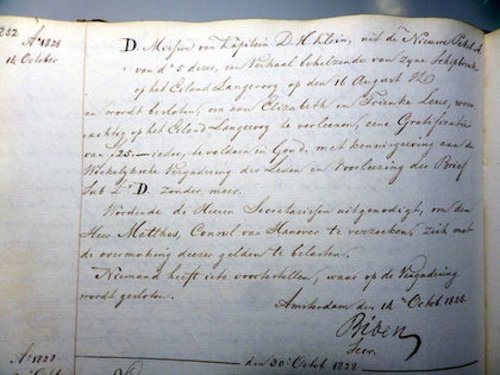 252
Aº 1828
14 October
D. Missive van Kapitein D. H. Klein, uit de Nieuwe Pekel A
van dº 5 dezer, een Verhaal behelzende van zyne Schipbreuk
op het Eiland Langeroog op den 16 August Jl.
en wordt besloten, om aan Elizabeth en Frienke Leus, woon
achtig op het Eiland Langeroog te verleenen, eene Gratificatie
van ƒ25.— ieder, te voldoen in Goud, met kennisgeving aan de
Wekelyksche Vergadering der Leden en Voorlezing der Brief
Sub Lª D. zonder meer.
Wordende de Heeren Secretarissen uitgenodigt, om den
Heer Matthes, Consul van Hanover te verzoeken, zich met
de overmaking dezer gelden te belasten.
Niemand heeft iets voortestellen, waar op de Vergadering
wordt gesloten.
Amsterdam den 14n Octob 1828.
Secr.
Aº 1828.
den 30n Octob 1828